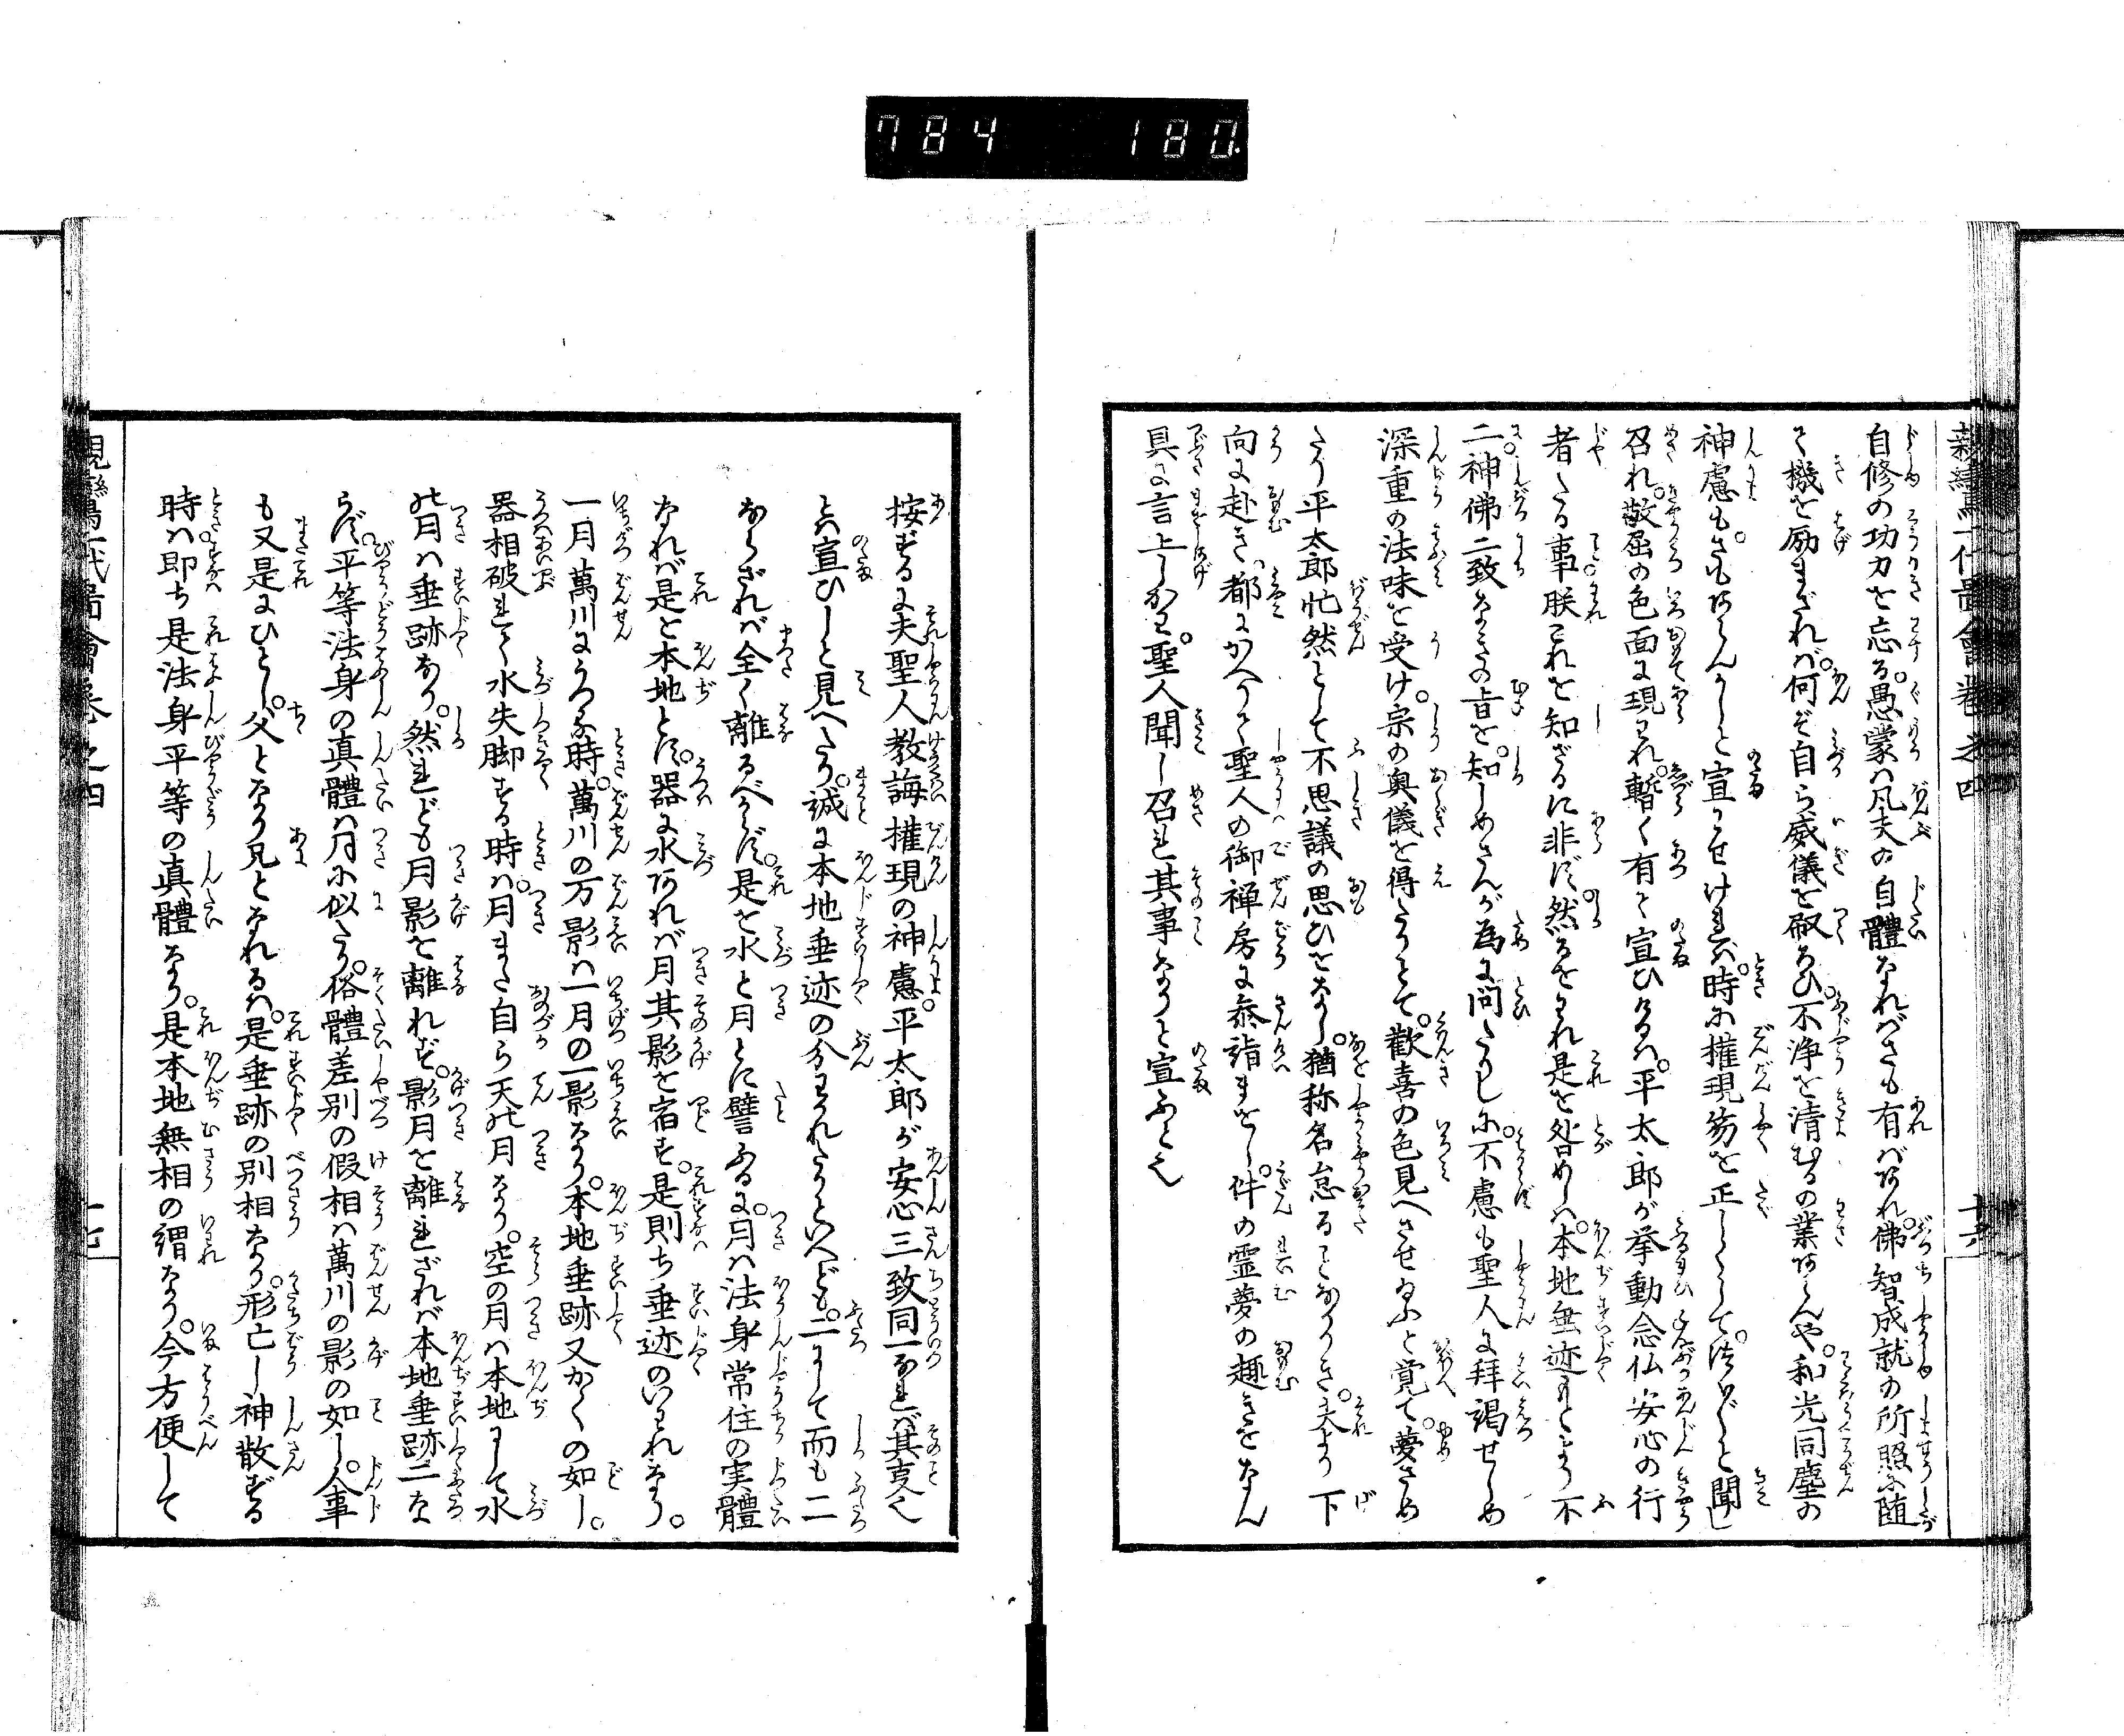 784 180
親鸞一代啚會巻之四
十六
自修の功力を忘る。愚蒙ハ凡夫の自體なれバさも有バあれ。佛智成就の所照に随
て機を励まざれバ。何ぞ自ら威儀を刷ろひ。不浄を清むるの業あらんや。和光同塵の
神慮も。さもあらんかしと宣かせけれバ。時に權現笏を正しくして。つく〴〵と聞し
召れ。敬屈の色面に現ハれ。暫く有て宣ひけるハ。平太郎が挙動念仏安心の行
者たる事朕これを知ざるに非ず。然るをわれ是を咎めしハ。本地垂迹もとより不
二。神佛二致なきの旨を。知しめさんが為に問たりしに。不慮も聖人に拜謁せしめ
深重の法味を受け。宗の奥儀を得たりとて。歡喜の色見へさせ給ふと覚て。夢さめ
たり平太郎忙然として不思議の思ひをなし。猶称名怠ることなかりき。夫より下
向に赴き。都にかへりて聖人の御禅房に参詣まをし。件の霊夢の趣きをなん
具に言上しかバ。聖人聞し召れ其事なりと宣ふとぞ
按ずるに夫聖人教誨權現の神慮。平太郎が安心三致同一なれバ其㕝也
とハ宣ひしと見へたり。誠に本地垂迹の分われたりといへども。二にして而も二
ならざれバ全く離るべからず。是を水と月とに譬ふるに。月ハ法身常住の実體
なれバ是を本地とす。器に水あれバ月其影を宿す。是則ち垂迹のいわれなり。
一月萬川にうつる時。萬川の万影ハ一月の一影なり。本地垂跡又かくの如し。
器相破れて水失脚する時ハ。月また自ら天の月なり。空の月ハ本地にして水
の月ハ垂跡なり。然れども月影を離れず。影月を離れざれバ本地垂跡二な
らず。平等法身の真體ハ月に似たり。俗體差別の假相ハ萬川の影の如し。人事
も又是にひとし。父となり兄となれるハ。是垂跡の別相なり。形亡し神散ずる
時ハ。即ち是法身平等の真體なり。是本地無相の謂なり。今方便して
親鸞一代啚會巻之四
十七